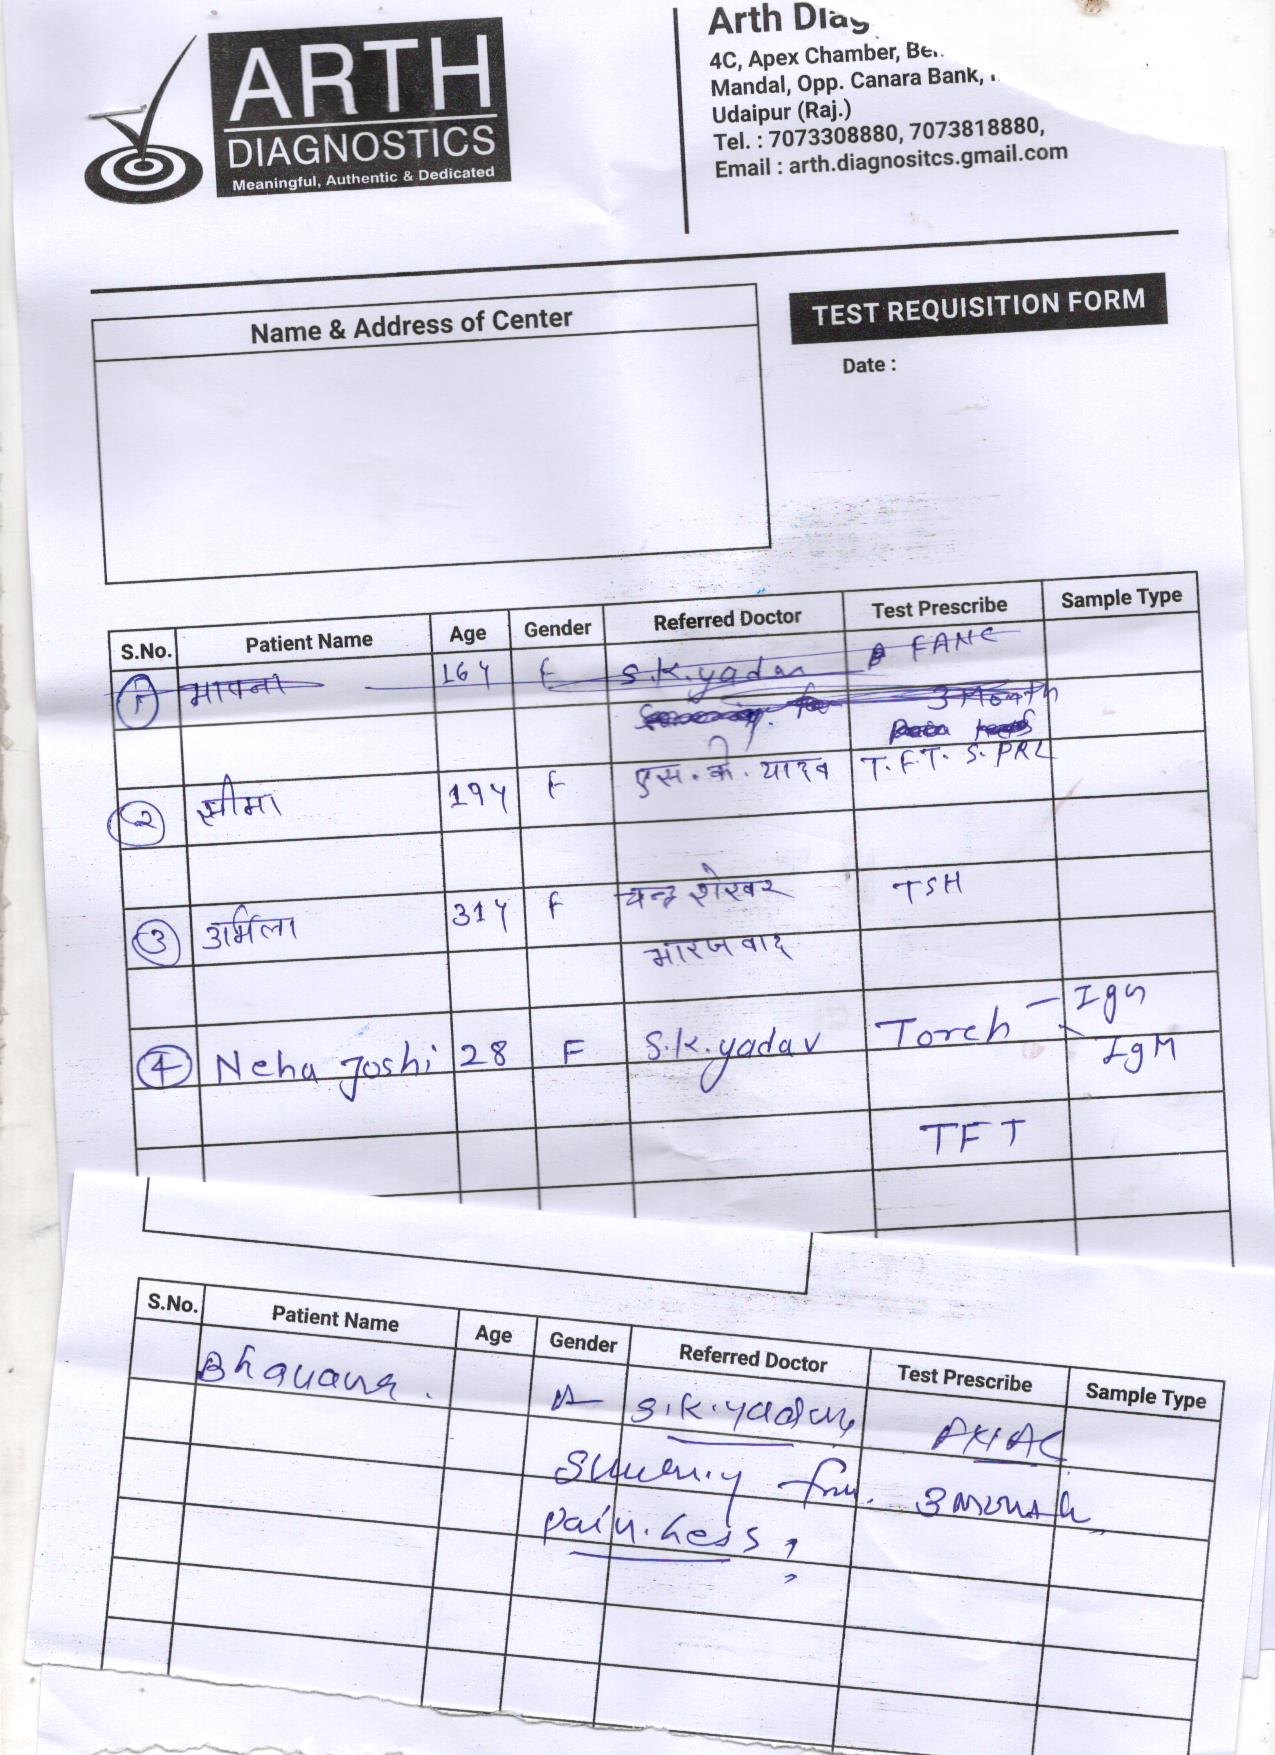 ARTH
DIAGNOSTICS
Meaningful, Authentic & Dedicated
Arth Diag
4C, Apex Chamber,
Mandal, Opp. Canara Bank,
Udaipur (Raj.)
Tel. : 7073308880, 7073818880,
Email : arth.diagnositcs.gmail.com
Name & Address of Center
TEST REQUISITION FORM
Date :
S.No. Patient Name Age Gender Referred Doctor Test Prescribe Sample Type
1 भावना 16Y F S.K.yadav FANC
3 Month
2 सीमा 19Y F एस. के. यादव T.F.T. S. PRL
3 उर्मिला 31Y F चन्द्र शेखर TSH
4 Neha Joshi 28 F S.K.yadav Torch - IgG
IgM
TFT
S.No. Patient Name Age Gender Referred Doctor Test Prescribe Sample Type
Bhavana. S.K.yadav
3 month